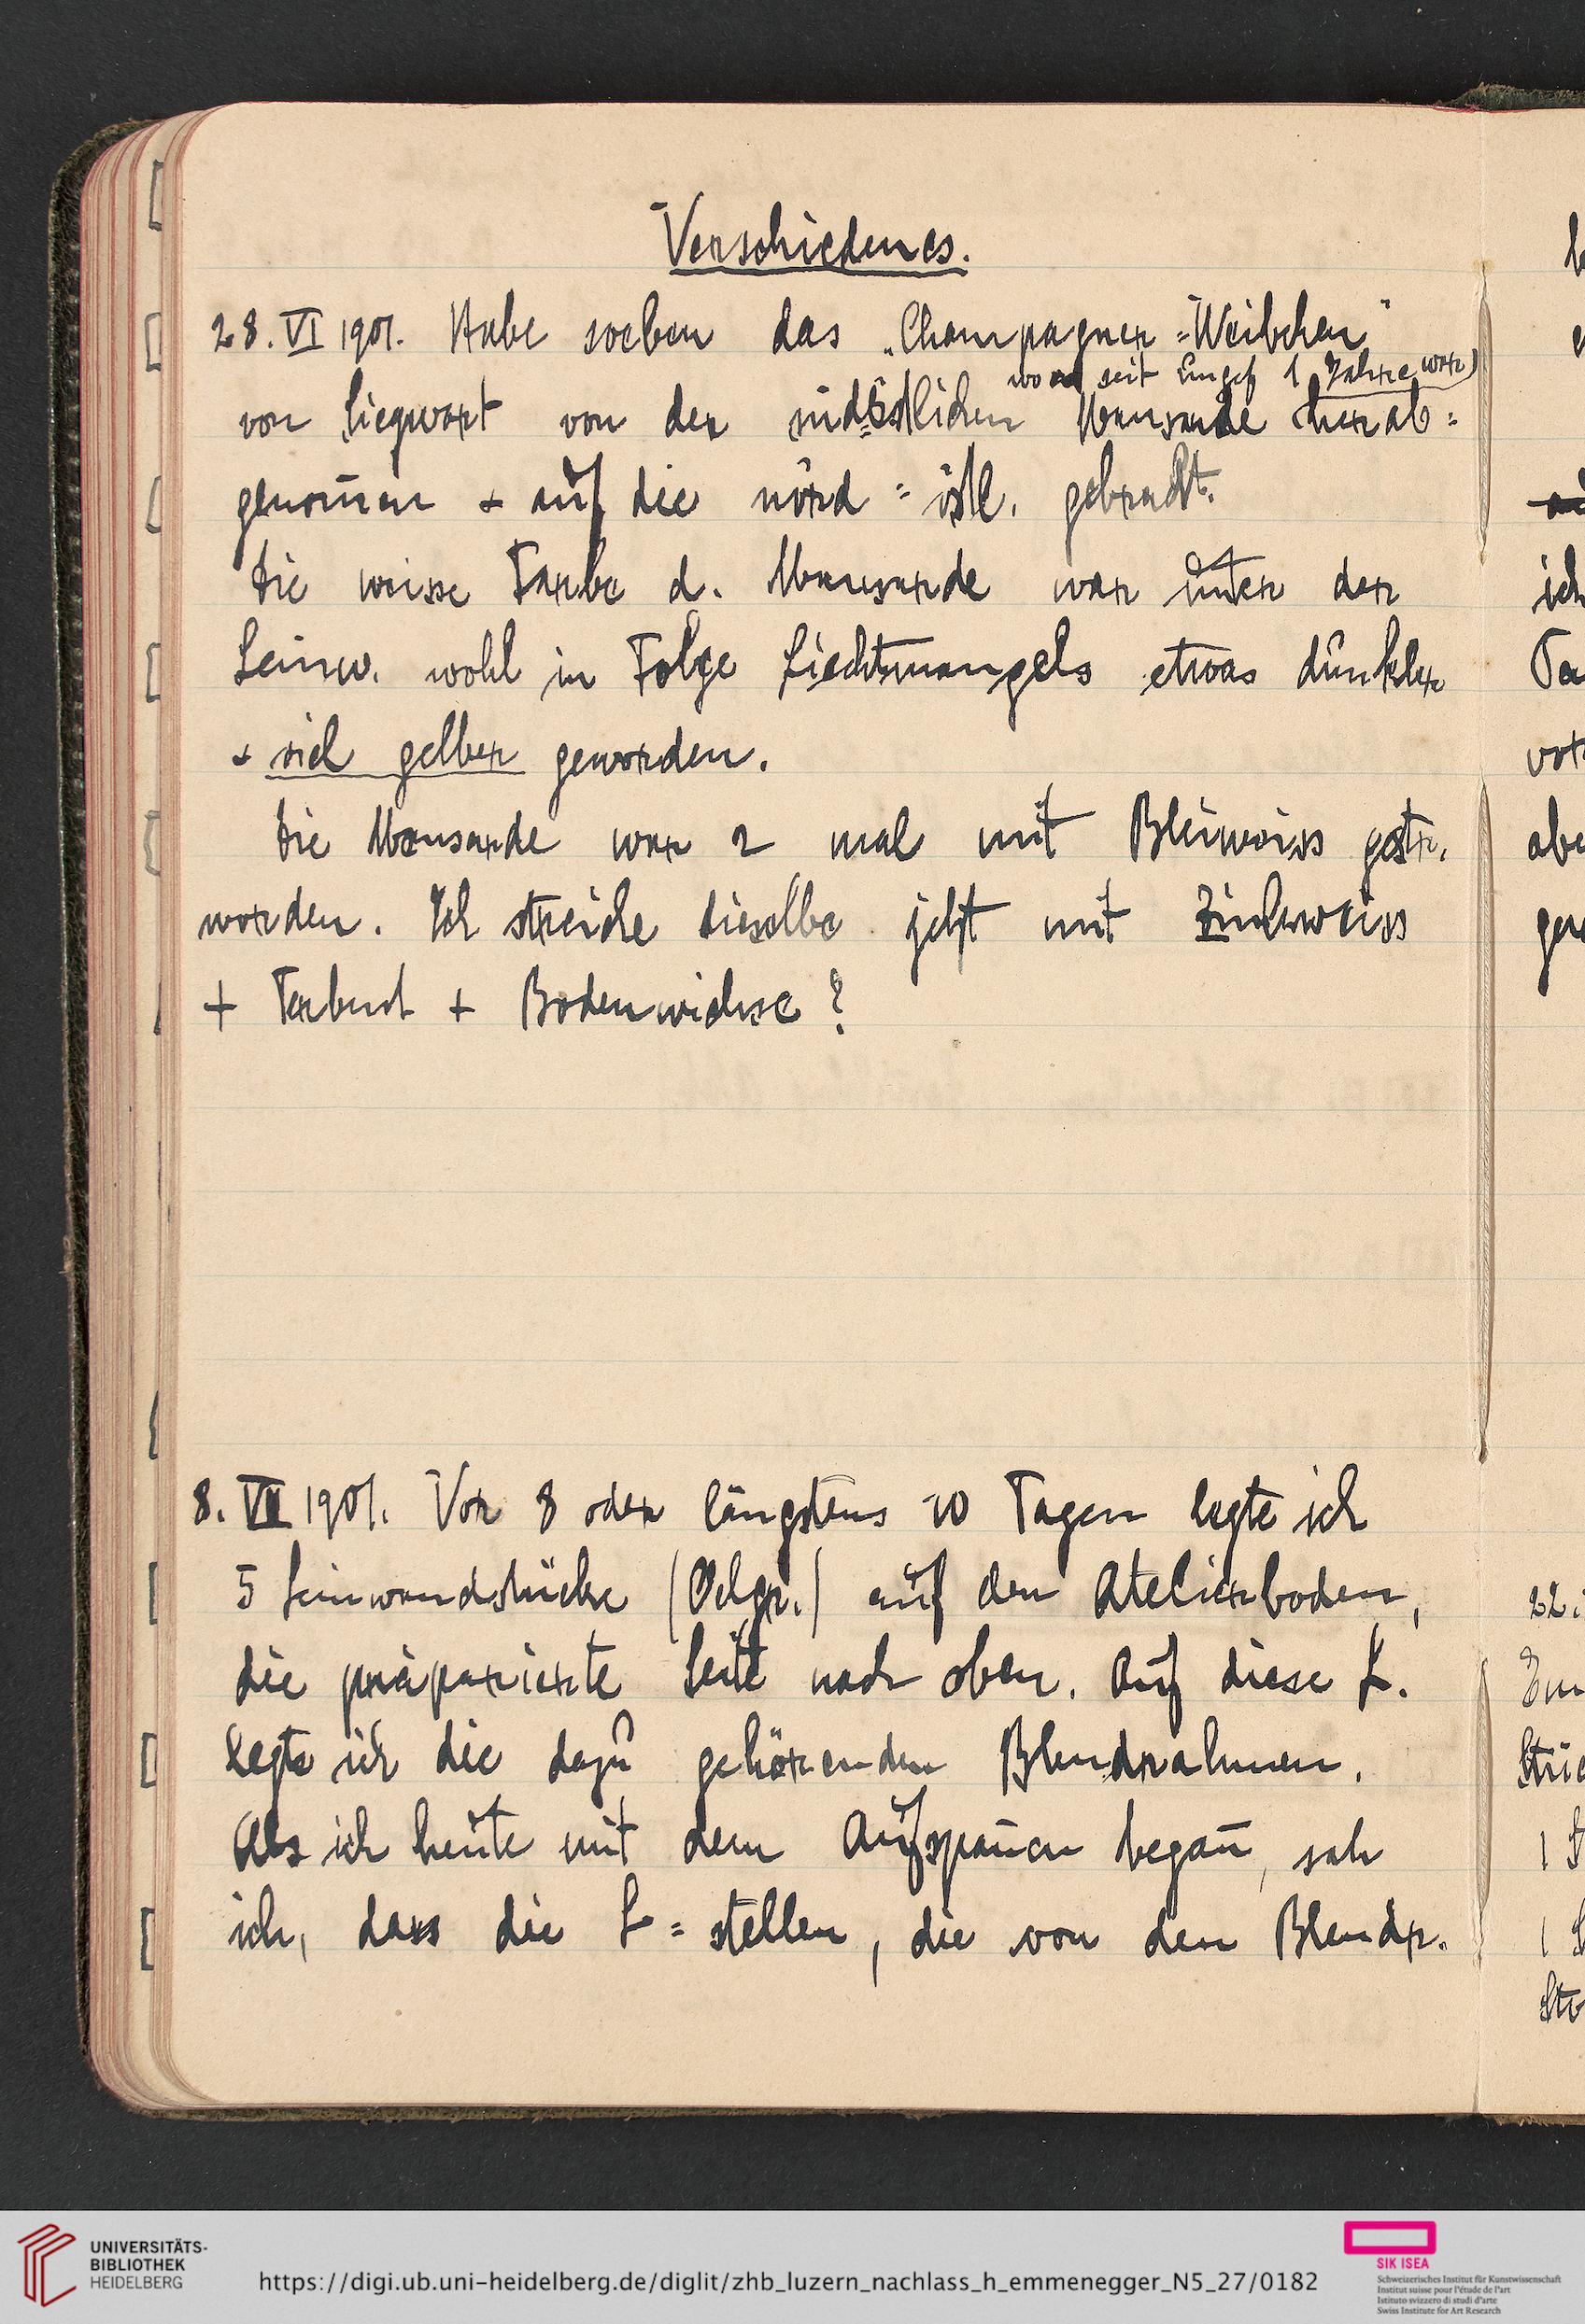 Verschiedenes.
28. VI 1901. Habe soeben das „Champagner=Weibchen"
wo es seit ungef 1 Jahre war)
von Siegwart von der südöstlichen Mansarde herab=
genom̄en + auf die nord=östl. gebracht.
Die weisse Farbe d. Mansarde war unter der
Leinw. wohl in Folge Liechtmangels etwas dunkler
+ viel gelber geworden.
Die Mansarde war 2 mal mit Bleiweiss gestr.
worden. Ich streiche dieselbe jetzt mit Zinkweiss
+ Terbent + Bodenwichse?
8. VII 1901. Vor 8 oder längstens 10 Tagen legte ich
5 Leinwandstücke (Oelgr.) auf den Atelierboden,
die präparierte Seite nach oben. Auf diese L.
legte ich die dazu gehörenden Blendrahmen.
Als ich heute mit dem Aufspan̄en began̄, sah
ich, dass die L=stellen, die von den Blendr.
ich
22.
UNIVERSITÄTS-
BIBLIOTHEK
HEIDELBERG
https://digi.ub.uni-heidelberg.de/diglit/zhb_luzern_nachlass_h_emmenegger_N5_27/0182
SIK ISEA
Schweizerisches Institut für Kunstwissenschaft
Institut suisse pour l'étude de l'art
Istituto svizzero di studi d'arte
Swiss Institute for Art Research